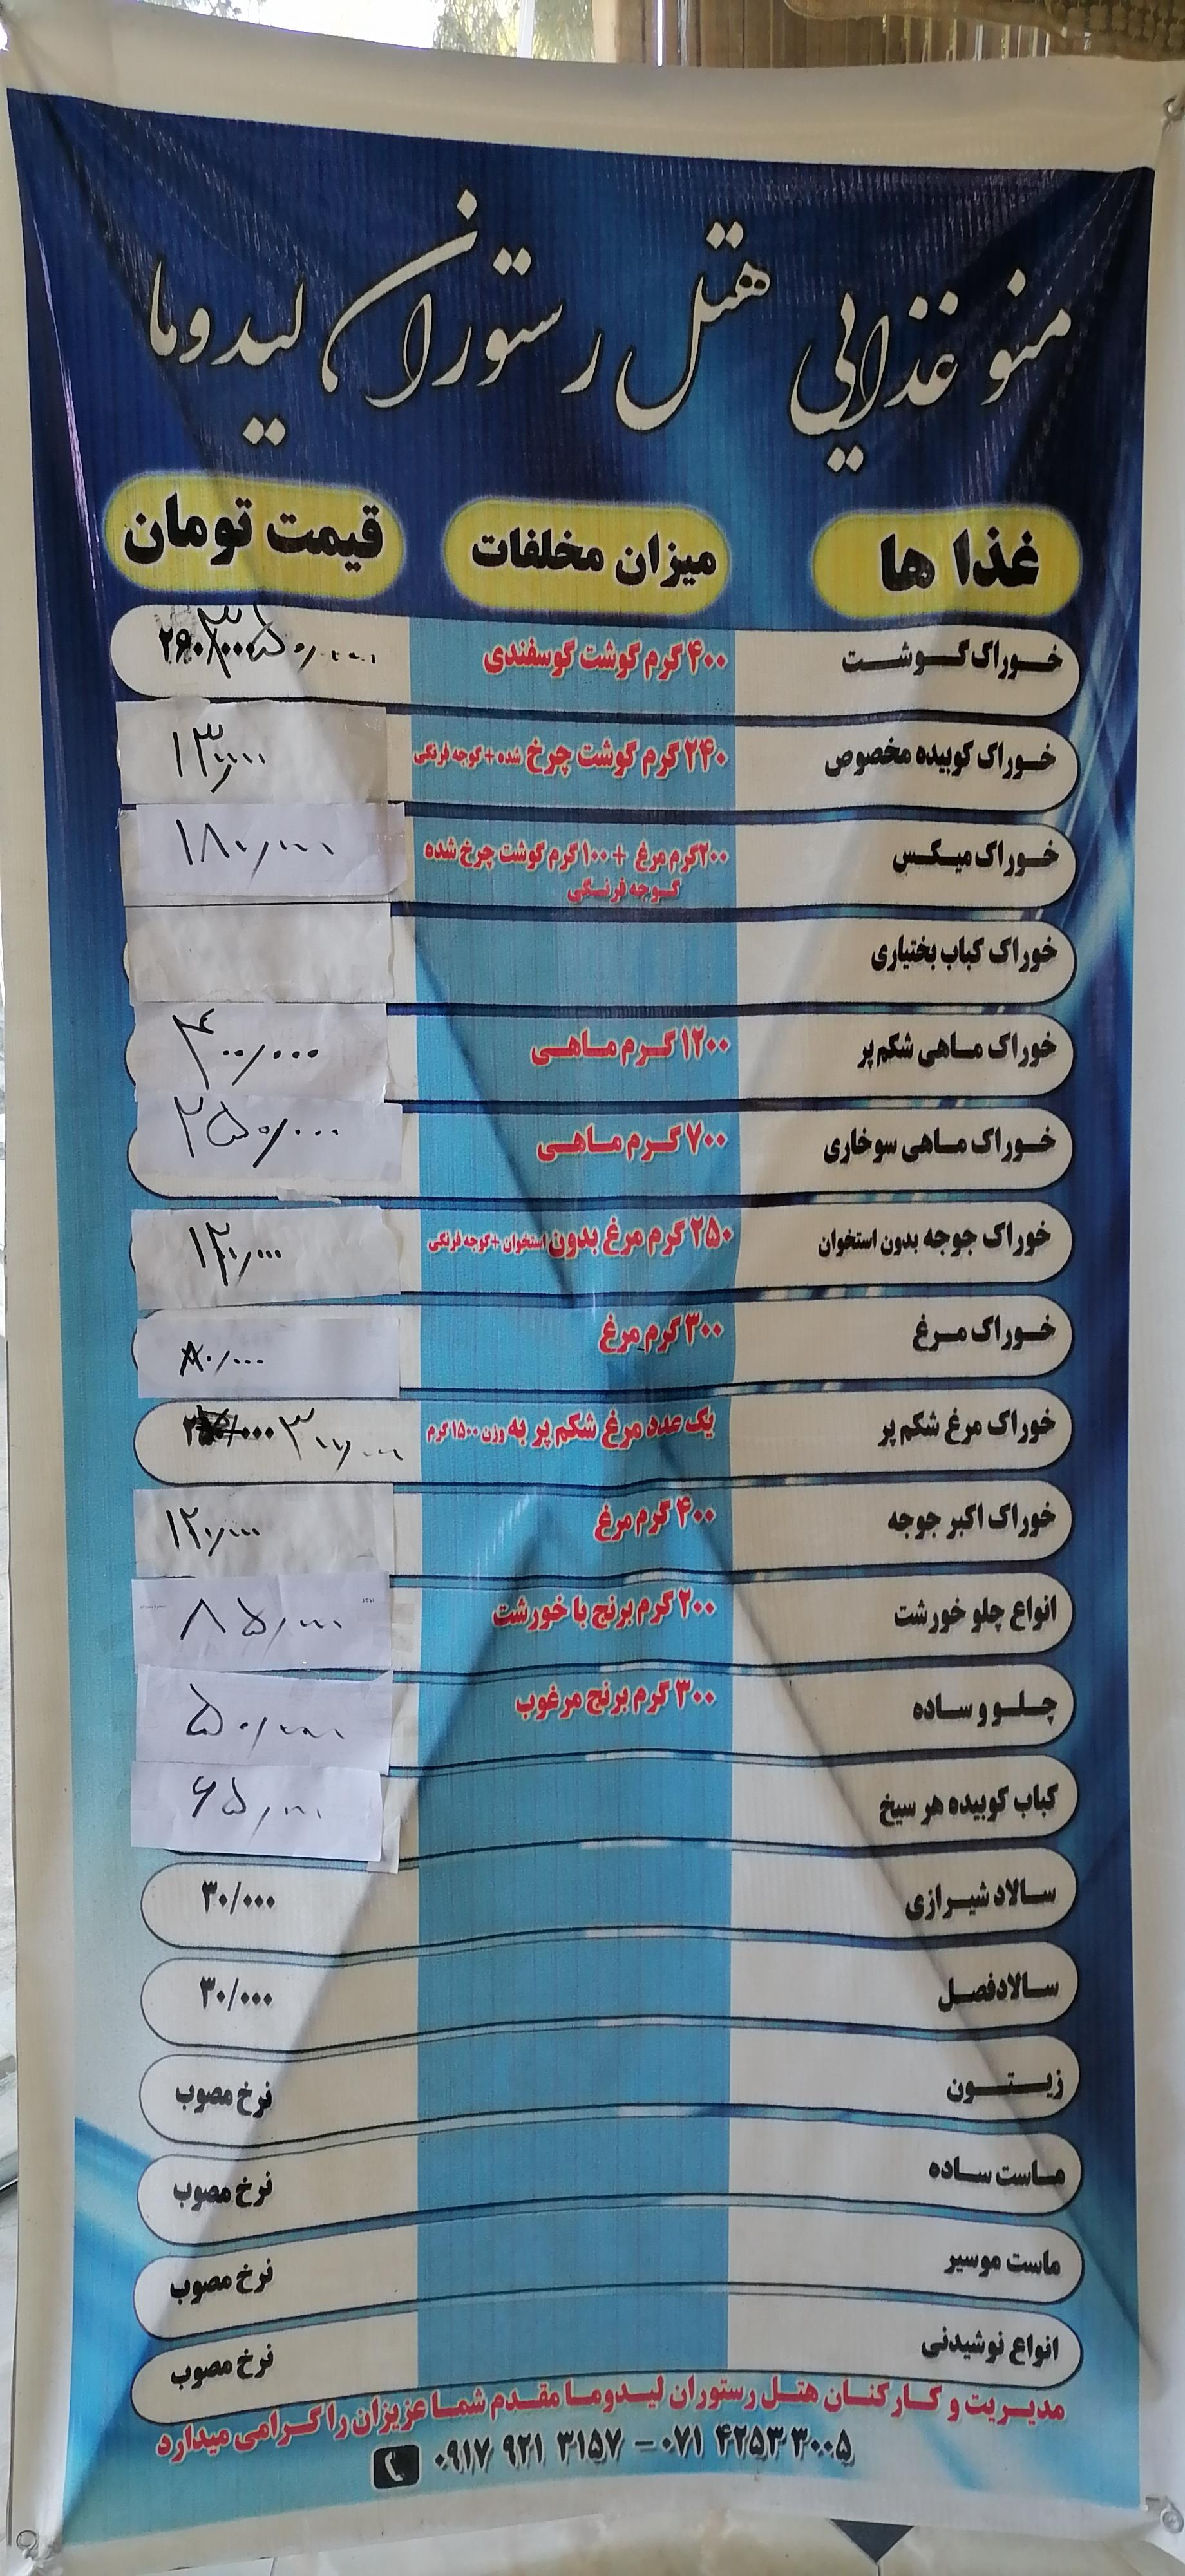 منو غذایی هتل رستوران لیدوما
غذا ها میزان مخلفات قیمت تومان
خوراک گوشت ۴۰۰ گرم گوشت گوسفندی ۳۵۰/۰۰۰
خوراک کوبیده مخصوص ۲۴۰ گرم گوشت چرخ شده + گوجه فرنگی ۱۳۰/۰۰۰
خوراک میکس ۲۰۰ گرم مرغ + ۱۰۰ گرم گوشت چرخ شده ۱۸۰/۰۰۰
گوجه فرنگی
خوراک کباب بختیاری
خوراک ماهی شکم پر ۱۲۰۰ گرم ماهی ۴۰۰/۰۰۰
خوراک ماهی سوخاری ۷۰۰ گرم ماهی ۲۵۰/۰۰۰
خوراک جوجه بدون استخوان ۲۵۰ گرم مرغ بدون استخوان + گوجه فرنگی
خوراک مرغ ۳۰۰ گرم مرغ ۸۰/۰۰۰
خوراک مرغ شکم پر یک عدد مرغ شکم پر به وزن ۱۵۰۰ گرم ۳۰۰/۰۰۰
خوراک اکبر جوجه ۴۰۰ گرم مرغ ۱۲۰/۰۰۰
انواع چلو خورشت ۲۰۰ گرم برنج با خورشت ۸۵/۰۰۰
چلو و ساده ۳۰۰ گرم برنج مرغوب ۵۰/۰۰۰
کباب کوبیده هر سیخ ۶۵/۰۰۰
سالاد شیرازی ۳۰/۰۰۰
سالاد فصل ۳۰/۰۰۰
زیتون نرخ مصوب
ماست ساده نرخ مصوب
ماست موسیر نرخ مصوب
انواع نوشیدنی نرخ مصوب
مدیریت و کارکنان هتل رستوران لیدوما مقدم شما عزیزان را گرامی میدارد
۰۹۱۷ ۹۲۱ ۳۱۵۷ – ۰۷۱ ۴۲۵۳ ۳۰۰۵